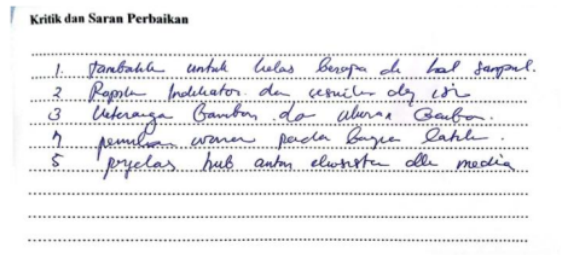 Kritik dan Saran Perbaikan
1. Tambahkan untuk kelas berapa di hal sampul.
2 Indikator dan sesuikn dg isi
3 Keterangan Gambar dan ukuran Gambar.
4 pemilihan warna pada bagian latihan.
5 penjelas hub antar ekosistem dlm media